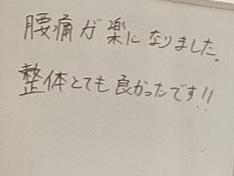 腰痛が楽になりました。
整体とても良かったです!!